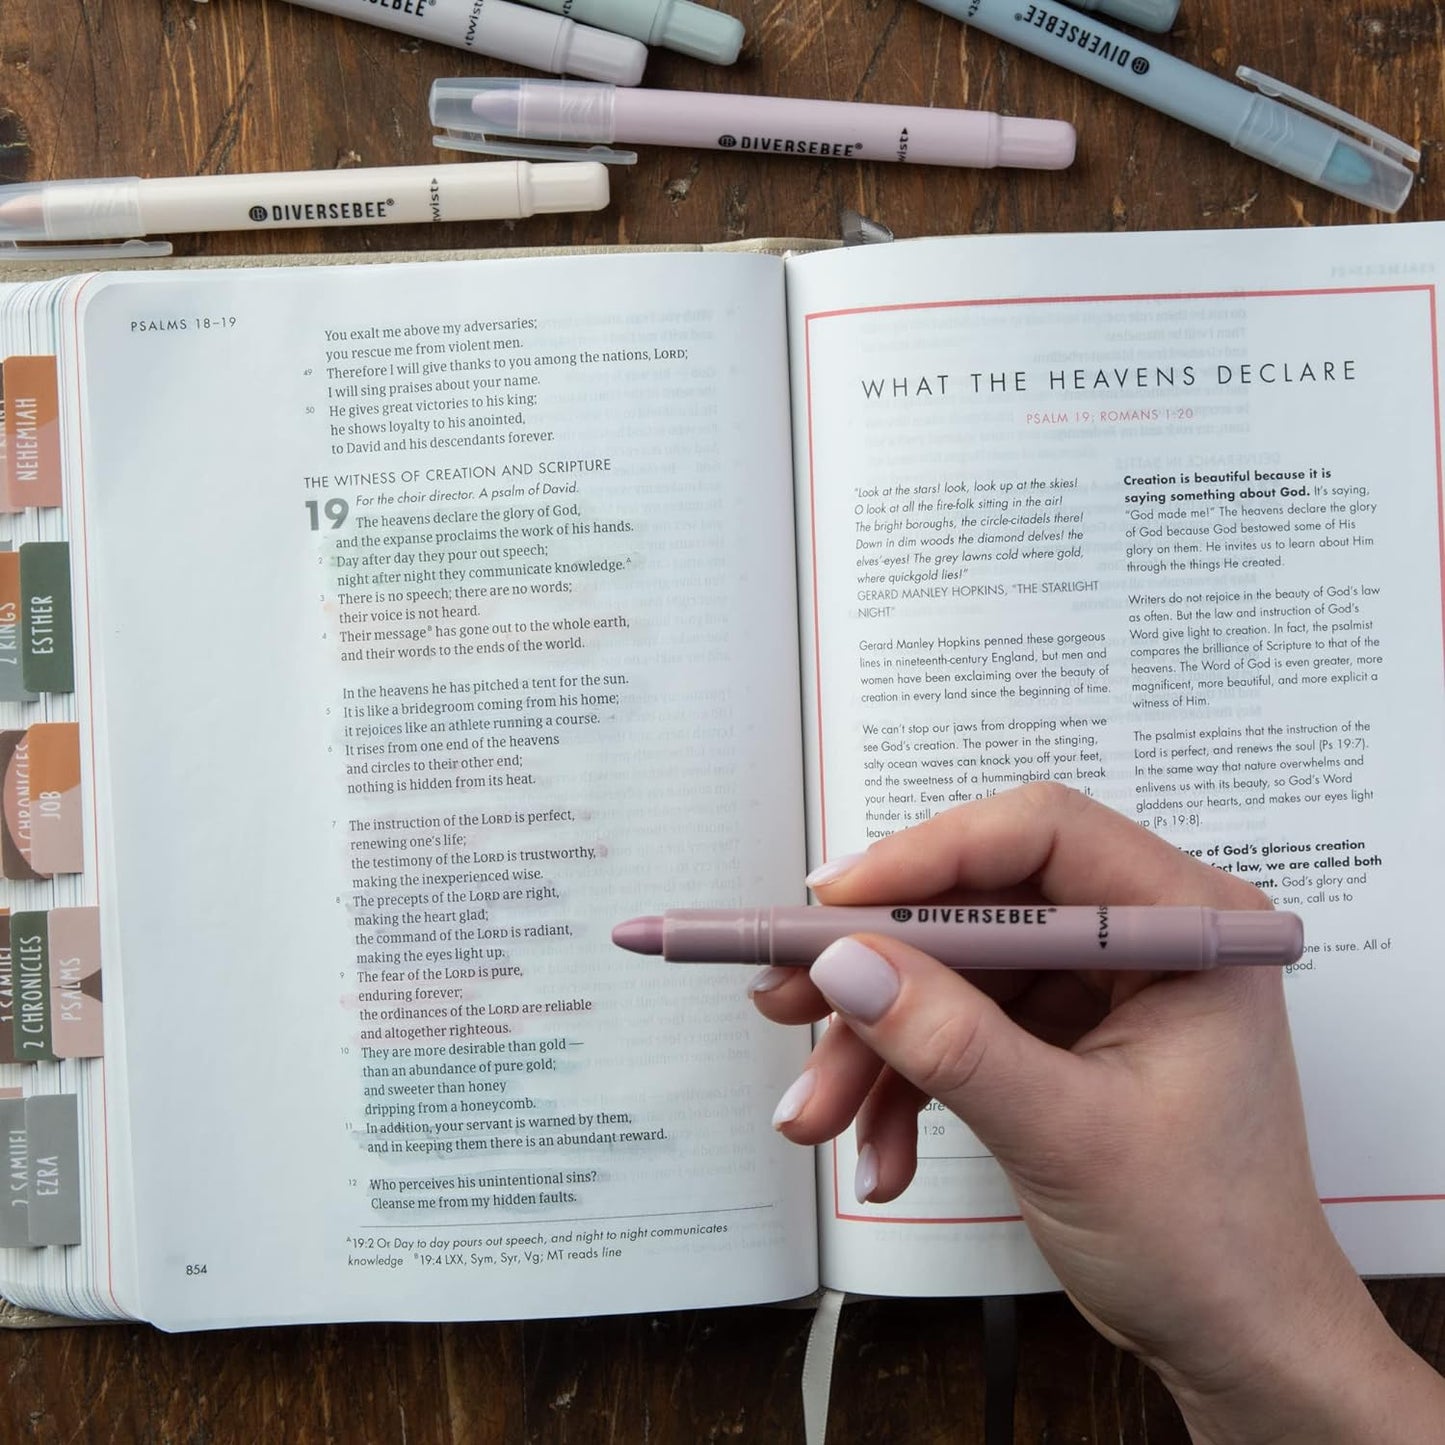 DIVERSEBEE®
twist
DIVERSEBEE®
DIVERSEBEE®
twist
DIVERSEBEE®
twist
NEHEMIAH
2 KINGS
ESTHER
1 CHRONICLES
JOB
1 SAMUEL
2 CHRONICLES
PSALMS
2 SAMUEL
EZRA
PSALMS 18–19
You exalt me above my adversaries;
you rescue me from violent men.
49 Therefore I will give thanks to you among the nations, LORD;
I will sing praises about your name.
50 He gives great victories to his king;
he shows loyalty to his anointed,
to David and his descendants forever.
THE WITNESS OF CREATION AND SCRIPTURE
19 For the choir director. A psalm of David.
The heavens declare the glory of God,
and the expanse proclaims the work of his hands.
2 Day after day they pour out speech;
night after night they communicate knowledge.A
3 There is no speech; there are no words;
their voice is not heard.
4 Their messageB has gone out to the whole earth,
and their words to the ends of the world.
In the heavens he has pitched a tent for the sun.
5 It is like a bridegroom coming from his home;
it rejoices like an athlete running a course.
6 It rises from one end of the heavens
and circles to their other end;
nothing is hidden from its heat.
7 The instruction of the LORD is perfect,
renewing one's life;
the testimony of the LORD is trustworthy,
making the inexperienced wise.
8 The precepts of the LORD are right,
making the heart glad;
the command of the LORD is radiant,
making the eyes light up.
9 The fear of the LORD is pure,
enduring forever;
the ordinances of the LORD are reliable
and altogether righteous.
10 They are more desirable than gold —
than an abundance of pure gold;
and sweeter than honey
dripping from a honeycomb.
11 In addition, your servant is warned by them,
and in keeping them there is an abundant reward.
12 Who perceives his unintentional sins?
Cleanse me from my hidden faults.
A 19:2 Or Day to day pours out speech, and night to night communicates
knowledge B 19:4 LXX, Sym, Syr, Vg; MT reads line
854
WHAT THE HEAVENS DECLARE
PSALM 19; ROMANS 1:20
"Look at the stars! look, look up at the skies!
O look at all the fire-folk sitting in the air!
The bright boroughs, the circle-citadels there!
Down in dim woods the diamond delves! the
elves'-eyes! The grey lawns cold where gold,
where quickgold lies!"
GERARD MANLEY HOPKINS, "THE STARLIGHT
NIGHT"
Gerard Manley Hopkins penned these gorgeous
lines in nineteenth-century England, but men and
women have been exclaiming over the beauty of
creation in every land since the beginning of time.
We can't stop our jaws from dropping when we
see God's creation. The power in the stinging,
salty ocean waves can knock you off your feet,
and the sweetness of a hummingbird can break
your heart. Even after a it,
thunder is still
1:20
Creation is beautiful because it is
saying something about God. It's saying,
"God made me!" The heavens declare the glory
of God because God bestowed some of His
glory on them. He invites us to learn about Him
through the things He created.
Writers do not rejoice in the beauty of God's law
as often. But the law and instruction of God's
Word give light to creation. In fact, the psalmist
compares the brilliance of Scripture to that of the
heavens. The Word of God is even greater, more
magnificent, more beautiful, and more explicit a
witness of Him.
The psalmist explains that the instruction of the
Lord is perfect, and renews the soul (Ps 19:7).
In the same way that nature overwhelms and
enlivens us with its beauty, so God's Word
gladdens our hearts, and makes our eyes light
up (Ps 19:8).
of God's glorious creation
law, we are called both
God's glory and
sun, call us to
one is sure. All of
good.
DIVERSEBEE®
twist